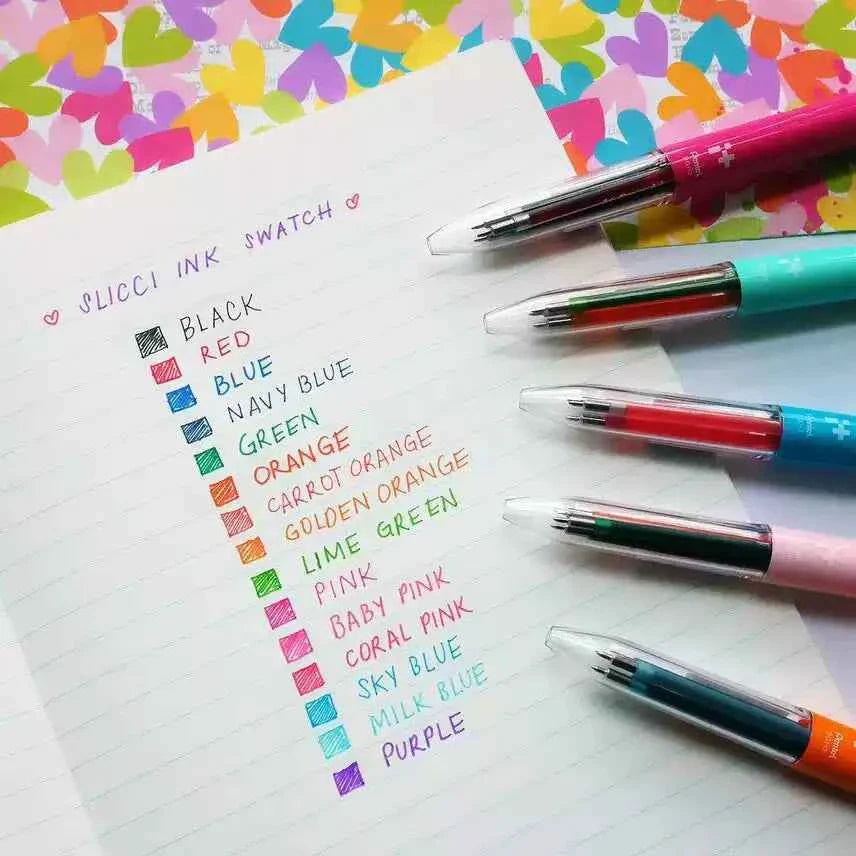 SLICCI INK SWATCH
BLACK
RED
BLUE
NAVY BLUE
GREEN
ORANGE
CARROT ORANGE
GOLDEN ORANGE
LIME GREEN
PINK
BABY PINK
CORAL PINK
SKY BLUE
MILK BLUE
PURPLE
Pentel
Pentel